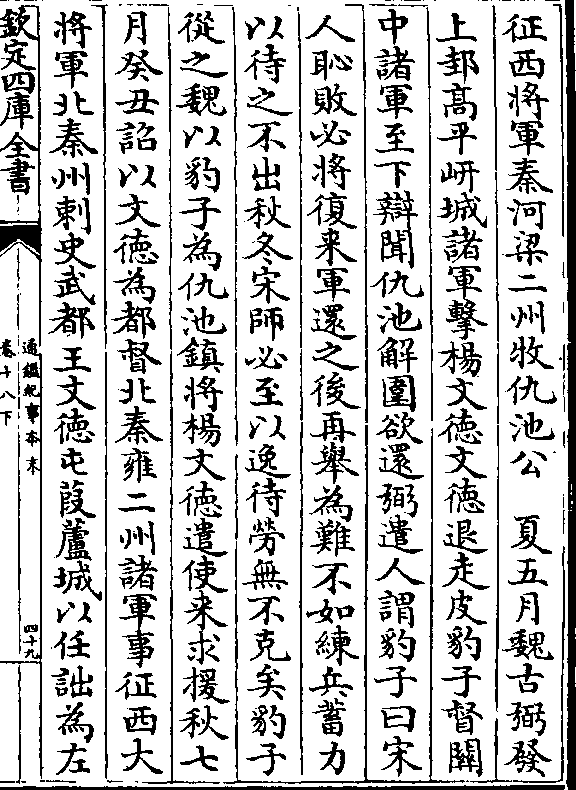 征西將軍秦河梁二州牧仇池公　夏五月魏古弼發
上邽髙平岍城諸軍擊楊文德文德退走皮豹子督闗
中諸軍至下辯聞仇池解圍欲還弼遣人謂豹子曰宋
人恥敗必將復来軍還之後再舉為難不如練兵蓄力
以待之不出秋冬宋師必至以逸待勞無不克矣豹子
從之魏以豹子為仇池鎮將楊文德遣使来求援秋七
月癸丑詔以文德為都督北秦雍二州諸軍事征西大
將軍北秦州刺史武都王文德屯葭蘆城以任朏為左
欽定四庫全書
通鑑紀事本末
卷十八下
四十九